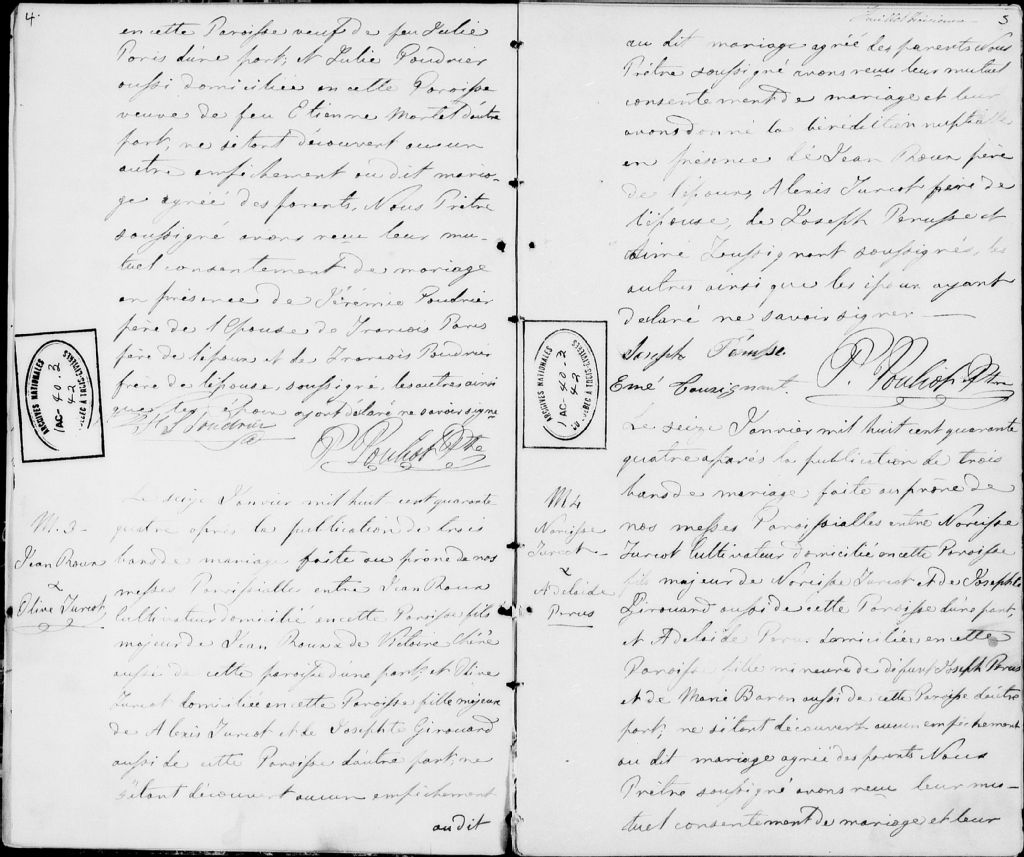 4.
en cette Paroisse veuf de feu Julie
Paris d'une part; et Julie Poudrier
aussi domiciliée en cette Paroisse
veuve de feu Etienne Martel d'autre
part, ne s'étant découvert aucun
autre empêchement au dit maria-
ge agréé des parents, Nous Prêtre
soussigné avons reçu leur mu-
tuel consentement de mariage
en présence de Jérémie Poudrier
père de l'Epouse de Francois Paris
père de l'époux et de Francois Poudrier
frère de l'épouse, soussigné, les autres ainsi
que les Epoux ayant déclaré ne savoir signe
Poudrier
P. Pouliot Ptre
ARCHIVES NATIONALES
1AC-40.2
42
M. 3-
Jean Roux
&
Olive Turcot
Le seize Janvier mil huit cent quarante
quatre après la publication de trois
bans de mariage faite au prône de nos
messes Paroissialles entre Jean Roux
Cultivateur domicilié en cette Paroisse fils
majeur de Jean Roux & de Victoire Chéné
aussi de cette paroisse d'une part; et Olive
Turcot domiciliée en cette Paroisse fille majeure
de Alexis Turcot et de Josephte Girouard
aussi de cette Paroisse d'autre part; ne
s'étant découvert aucun empêchement
au dit
5
au dit mariage agréé des parents Nous
Prêtre soussigné avons reçu leur mutuel
consentement de mariage et leur
avons donné la bénédiction nuptialle
en présence de Jean Roux père
de l'époux, Alexis Turcot père de
l'épouse, de Joseph Perusse et
Aimé Loussignant soussignés, les
autres ainsi que les époux ayant
déclaré ne savoir signer
Joseph
Emé Cousignant
P. Pouliot Ptre
ARCHIVES NATIONALES
1AC-40.2
42
M 4
Narcisse
Turcot
&
Adelaide
Perus
Le seize Janvier mil huit cent quarante
quatre après la publication de trois
bans de mariage faite au prône de
nos messes Paroissialles entre Narcisse
Turcot Cultivateur domicilié en cette Paroisse
fils majeur de Narcisse Turcot et de Josephte
Girouard aussi de cette Paroisse d'une part,
et Adelaide Perus domiciliée en cette
Paroisse fille mineure de défunt Joseph Perus
et de Marie Baron aussi de cette Paroisse d'autre
part; ne s'étant découvert aucun empêchement
au dit mariage agréé des parents Nous
Prêtre soussigné avons reçu leur mu-
tuel consentement de mariage et leur